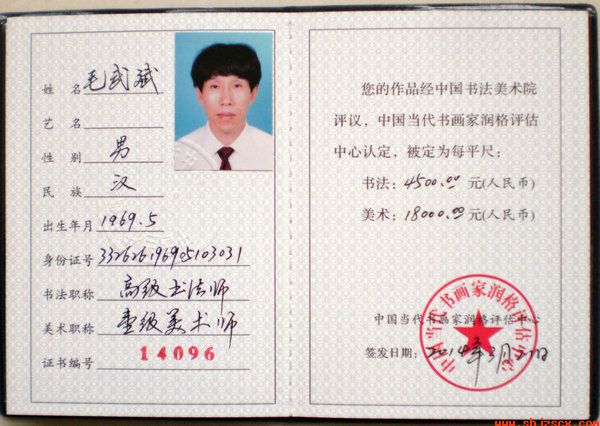 姓 名 毛武斌
艺 名
性 别 男
民 族 汉
出生年月 1969.5
身份证号 332626196905103031
书法职称 高级书法师
美术职称 壹级美术师
证书编号 14096
您的作品经中国书法美术院
评议，中国当代书画家润格评估
中心认定，被定为每平尺：
书法：4500.00 元(人民币)
美术：18000.00 元(人民币)
中国当代书画家润格评估中心
中国当代书画家润格评估中心
签发日期：2014年3月21日
www.sbjzscx.com